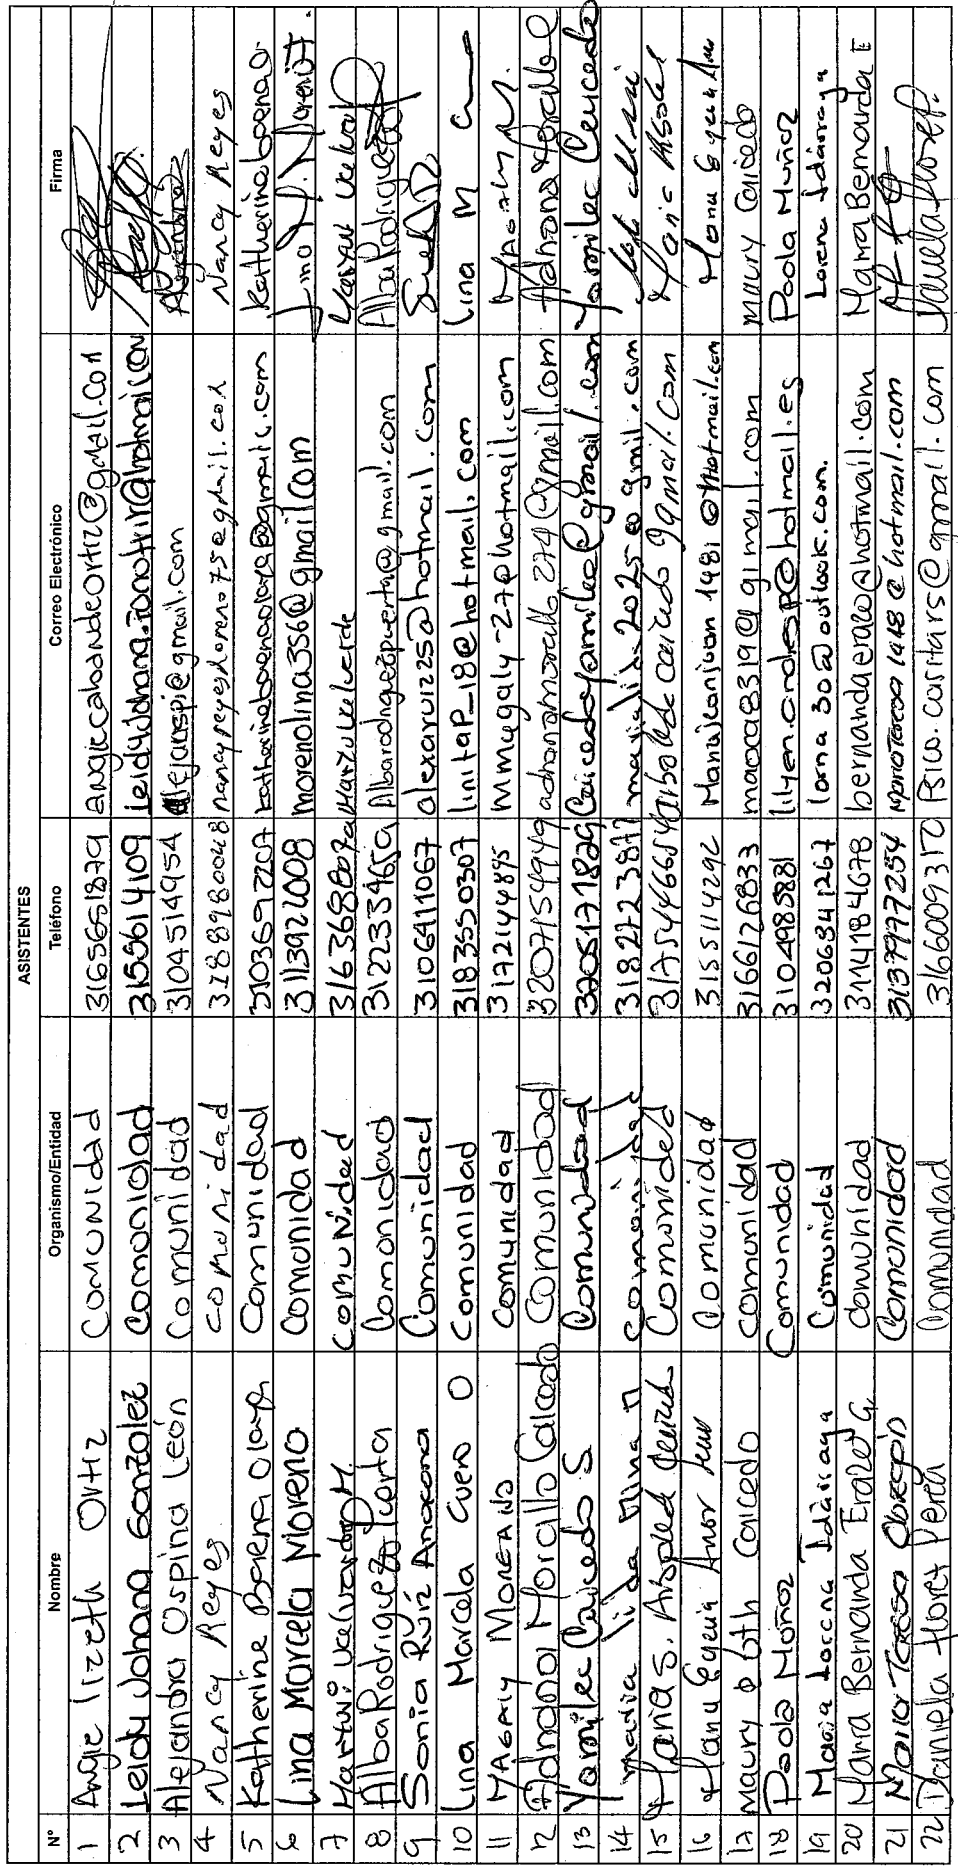 ASISTENTES
N° Nombre Organismo/Entidad Teléfono Correo Electrónico Firma
1 Angie lizeth Ortiz Comunidad 3165651879 angiecabandeortiz@gmail.com
2 Leidy Johana Gonzalez Comunidad 3155614109
3 Alejandra Ospina León Comunidad 3104514954 alejaospi@gmail.com Alejandra
4 Nancy Reyes comunidad 328980048 nancyreyesmoreno75@gmail.com Nancy Reyes
5 Katherine Baena Olaya Comunidad 3103697207 katherinebaenaolaya@gmail.com Katherine baena o.
6 Lina Marcela Moreno Comunidad 3113921008 morenolina356@gmail.com Lina M. Moreno
7 comunidad
8 Alba Rodriguez Puerta Comunidad 3122334659 Albarodriguezpuerta@gmail.com Alba Rodriguez
9 Sonia Ruiz Anacona Comunidad 3106411067 alexaruiz25@hotmail.com
10 Lina Marcela Cuero O Comunidad 3183550307 linitaP_18@hotmail.com Lina M C
11 MAGALY MORENO Comunidad 3172144895 Mmugaly-27@hotmail.com MAGALY M.
12 Adriana Morcillo Calcedo Comunidad 3207154949 adrianamorcillo274@gmail.com Adriana Morcillo
13 Yamilec Caicedo S Comunidad 3205177829 Caicedoyamilec@gmail.com Yamilec Caicedo
14 maria lida mina Comunidad 3182723877 marialida2025@gmail.com
15 Maria S. Arboleda Comunidad 3175446654
16 Comunidad 3155114292 @hotmail.com
17 Maury Ruth Caicedo comunidad 3166126833 macca8319@gmail.com maury Caicedo
18 Paola Muñoz Comunidad 3104985881 lilyen.andresp@hotmail.es Paola Muñoz
19 Maria Lorena Idárraga Comunidad 3206341267 lorna30@outlook.com. Lorena Idárraga
20 Maria Bernarda Erazo G. Comunidad 3114184678 bernandaerazo@hotmail.com Maria Bernarda E
21 Maria Teresa Obregón Comunidad 3137977254 mariateresa1448@hotmail.com
22 Daniela Florez Perea Comunidad 3166009317 Psico.caritars@gmail.com Daniela Florez P.